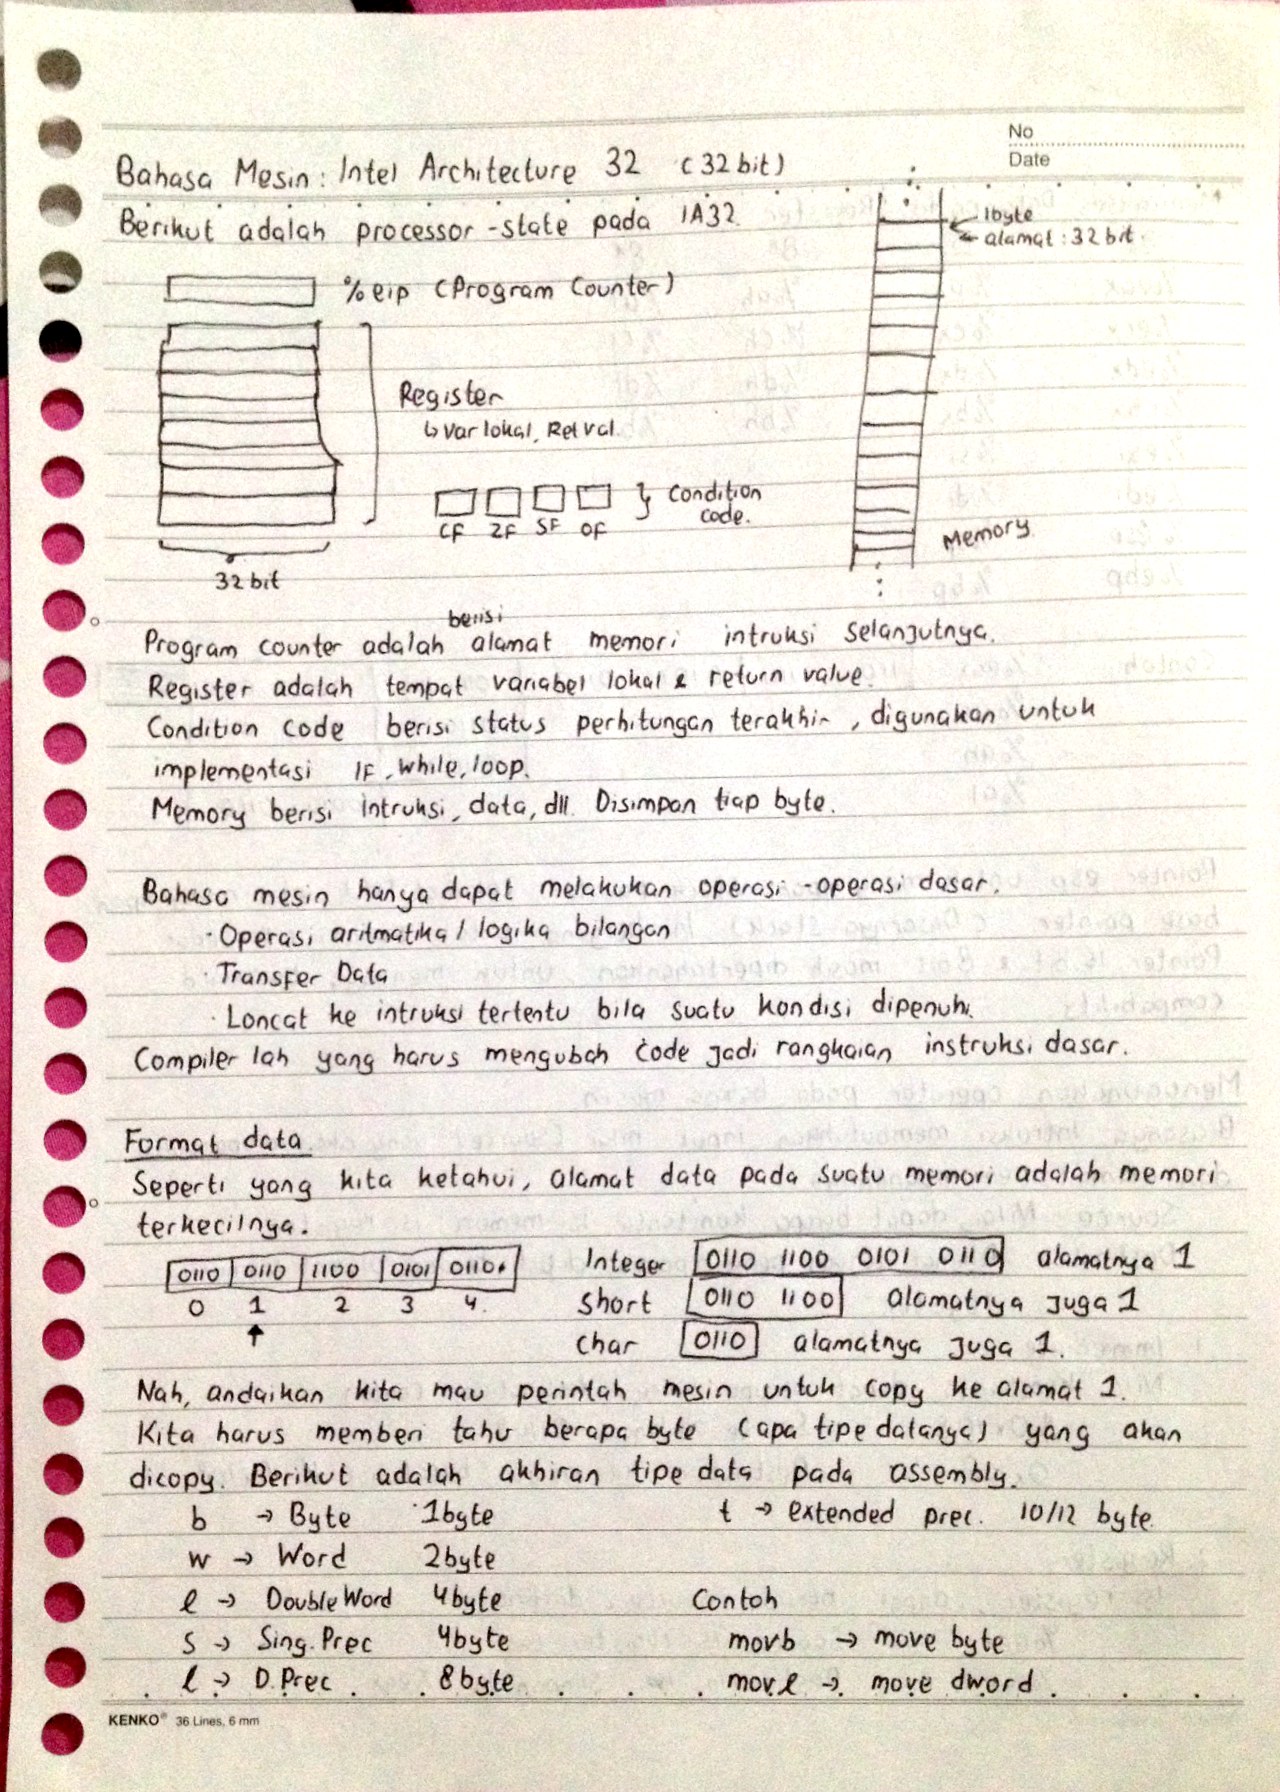 No
Date
Bahasa Mesin : Intel Architecture 32 (32 bit)
Berikut adalah processor-state pada IA32
1byte
alamat : 32 bit.
%eip (Program Counter)
Register
↳ Var lokal, Ret val
CF ZF SF OF
} Condition code.
32 bit
Memory
berisi
Program counter adalah alamat memori intruksi selanjutnya.
Register adalah tempat variabel lokal & return value.
Condition code berisi status perhitungan terakhir, digunakan untuk
implementasi IF, while, loop.
Memory berisi intruksi, data, dll. Disimpan tiap byte.
Bahasa mesin hanya dapat melakukan operasi-operasi dasar.
· Operasi aritmatika / logika bilangan
· Transfer Data
· Loncat ke intruksi tertentu bila suatu kondisi dipenuhi.
Compiler lah yang harus mengubah code jadi rangkaian instruksi dasar.
Format data
Seperti yang kita ketahui, alamat data pada suatu memori adalah memori
terkecilnya.
0110 0110 1100 0101 0110
0 1 2 3 4
Integer 0110 1100 0101 0110 alamatnya 1
short 0110 1100 alamatnya juga 1
char 0110 alamatnya juga 1.
Nah, andaikan kita mau perintah mesin untuk copy ke alamat 1.
Kita harus memberi tahu berapa byte (apa tipe datanya) yang akan
dicopy. Berikut adalah akhiran tipe data pada assembly.
b → Byte 1byte
t → extended prec. 10/12 byte.
w → Word 2byte
l → Double Word 4byte
Contoh
s → Sing. Prec 4byte
movb → move byte
l → D. Prec 8byte
movl → move dword
KENKO® 36 Lines, 6 mm